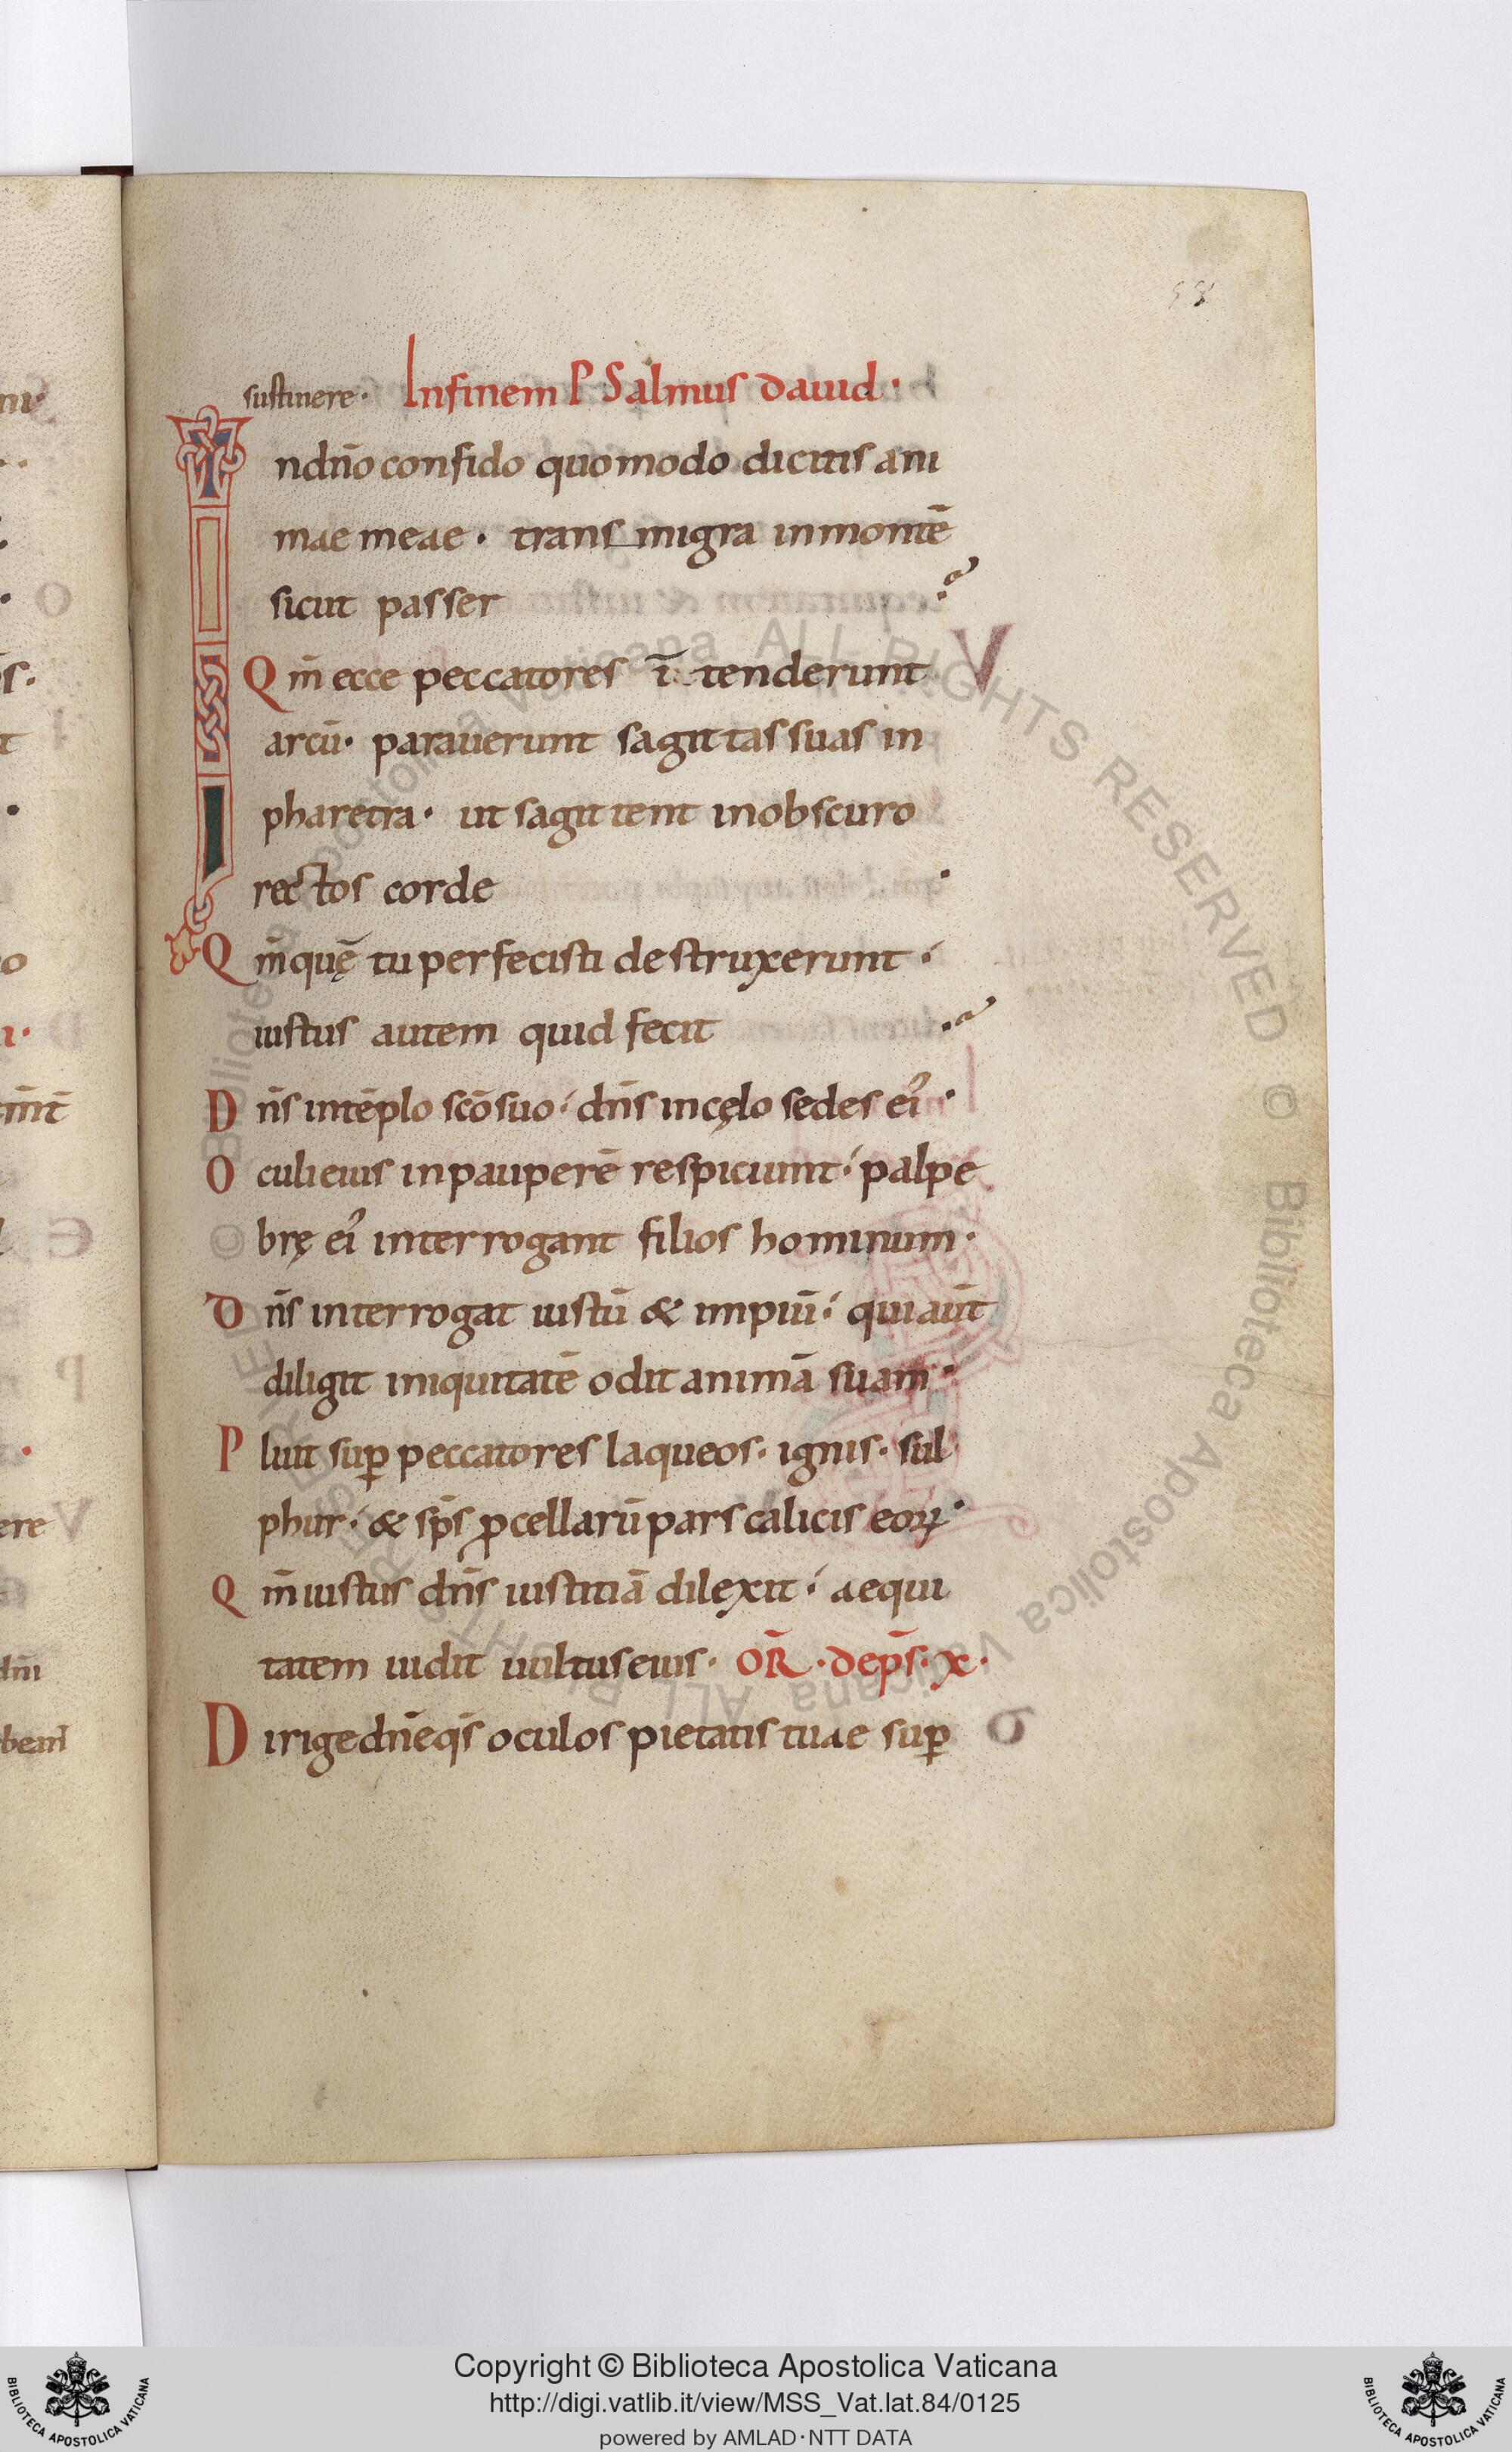 58
sustinere · In finem PSalmus dauid ·
In dn̄o confido quomodo dicitis ani
mae meae · trans migra in montē
sicut passer
Qm̄ ecce peccatores ī tenderunt
arcū · parauerunt sagittas suas in
pharetra · ut sagittent in obscuro
rectos corde ·
Qm̄ quę tu perfecisti destruxerunt ·
iustus autem quid fecit
Dn̄s in tēplo scō suo · dn̄s in cęlo sedes ei᾽ ·
Oculi eius in pauperē respiciunt · palpe
brę ei᾽ interrogant filios hominum ·
Dn̄s interrogat iustū & impiū · qui aūt
diligit iniquitatē odit animā suam ·
Pluit suꝑ peccatores laqueos · ignis · sul
phur · & sp̄s ꝓcellarū pars calicis eoꝝ ·
Qm̄ iustus dn̄s iustitiā dilexit · aequi
tatem uidit uultus eius · OR̄ · de ps̄ · x ·
Dirige dn̄e qs̄ oculos pietatis tuae suꝑ
© Biblioteca Apostolica Vaticana ALL RIGHTS RESERVED
© Biblioteca Apostolica Vaticana ALL RIGHTS RESERVED
BIBLIOTECA APOSTOLICA VATICANA
Copyright © Biblioteca Apostolica Vaticana
http://digi.vatlib.it/view/MSS_Vat.lat.84/0125
powered by AMLAD·NTT DATA
BIBLIOTECA APOSTOLICA VATICANA